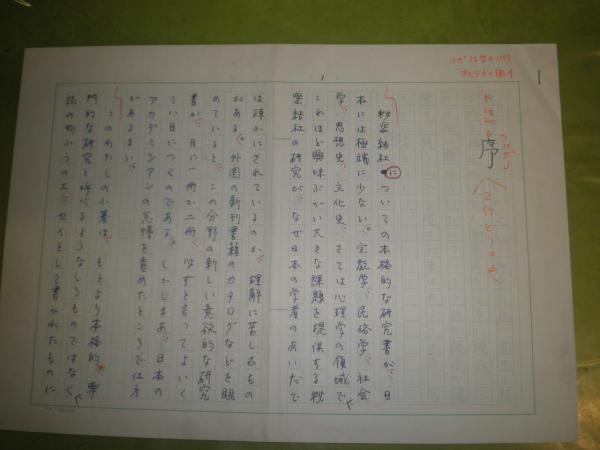 序
秘密結社についての本格的な研究書が、日
本には極端に少ない。宗教学、民俗学、社会
学、思想史、文化史、さては心理学の領域で、
これほど興味ぶかい大きな課題を提供する秘
密結社の研究が、なぜ日本の学者のあいだで
は疎かにされているのか、理解に苦しむもの
がある。外国の新刊書籍のカタログなどを眺
めていると、この分野の新しい意欲的な研究
書が、月に一冊か二冊、必ずと言ってよいく
らい目につくのである。しかしまあ、日本の
アカデミシアンの怠慢を責めたところで仕方
があるまい。
このわたしの小著は、もとより本格的、専
門的な研究と呼べるようなしろものではなく、
談の物ふうのエッセイとして書かれたものに